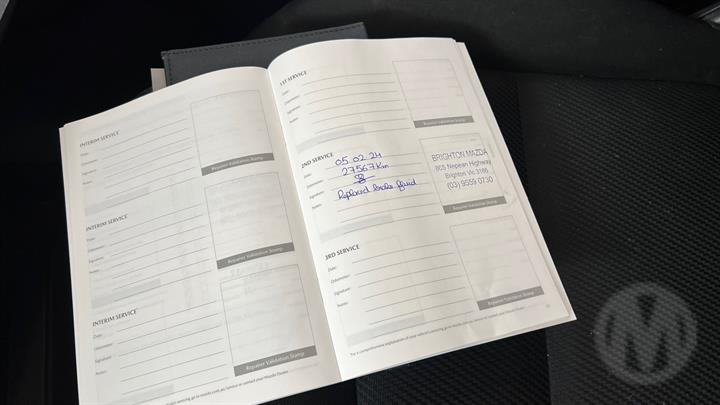 INTERIM SERVICE
Date:
Odometer:
Signature:
Notes:
Repairer Validation Stamp
INTERIM SERVICE
Date:
Odometer:
Signature:
Notes:
Repairer Validation Stamp
INTERIM SERVICE
Date:
Odometer:
Signature:
Notes:
Repairer Validation Stamp
1ST SERVICE
Date:
Odometer:
Signature:
Notes:
Repairer Validation Stamp
2ND SERVICE
Date: 05 02 24
Odometer: 27567km
Signature:
Notes: Replaced brake fluid
BRIGHTON MAZDA
805 Nepean Highway
Brighton Vic 3186
(03) 9559 0730
Repairer Validation Stamp
3RD SERVICE
Date:
Odometer:
Signature:
Notes:
Repairer Validation Stamp